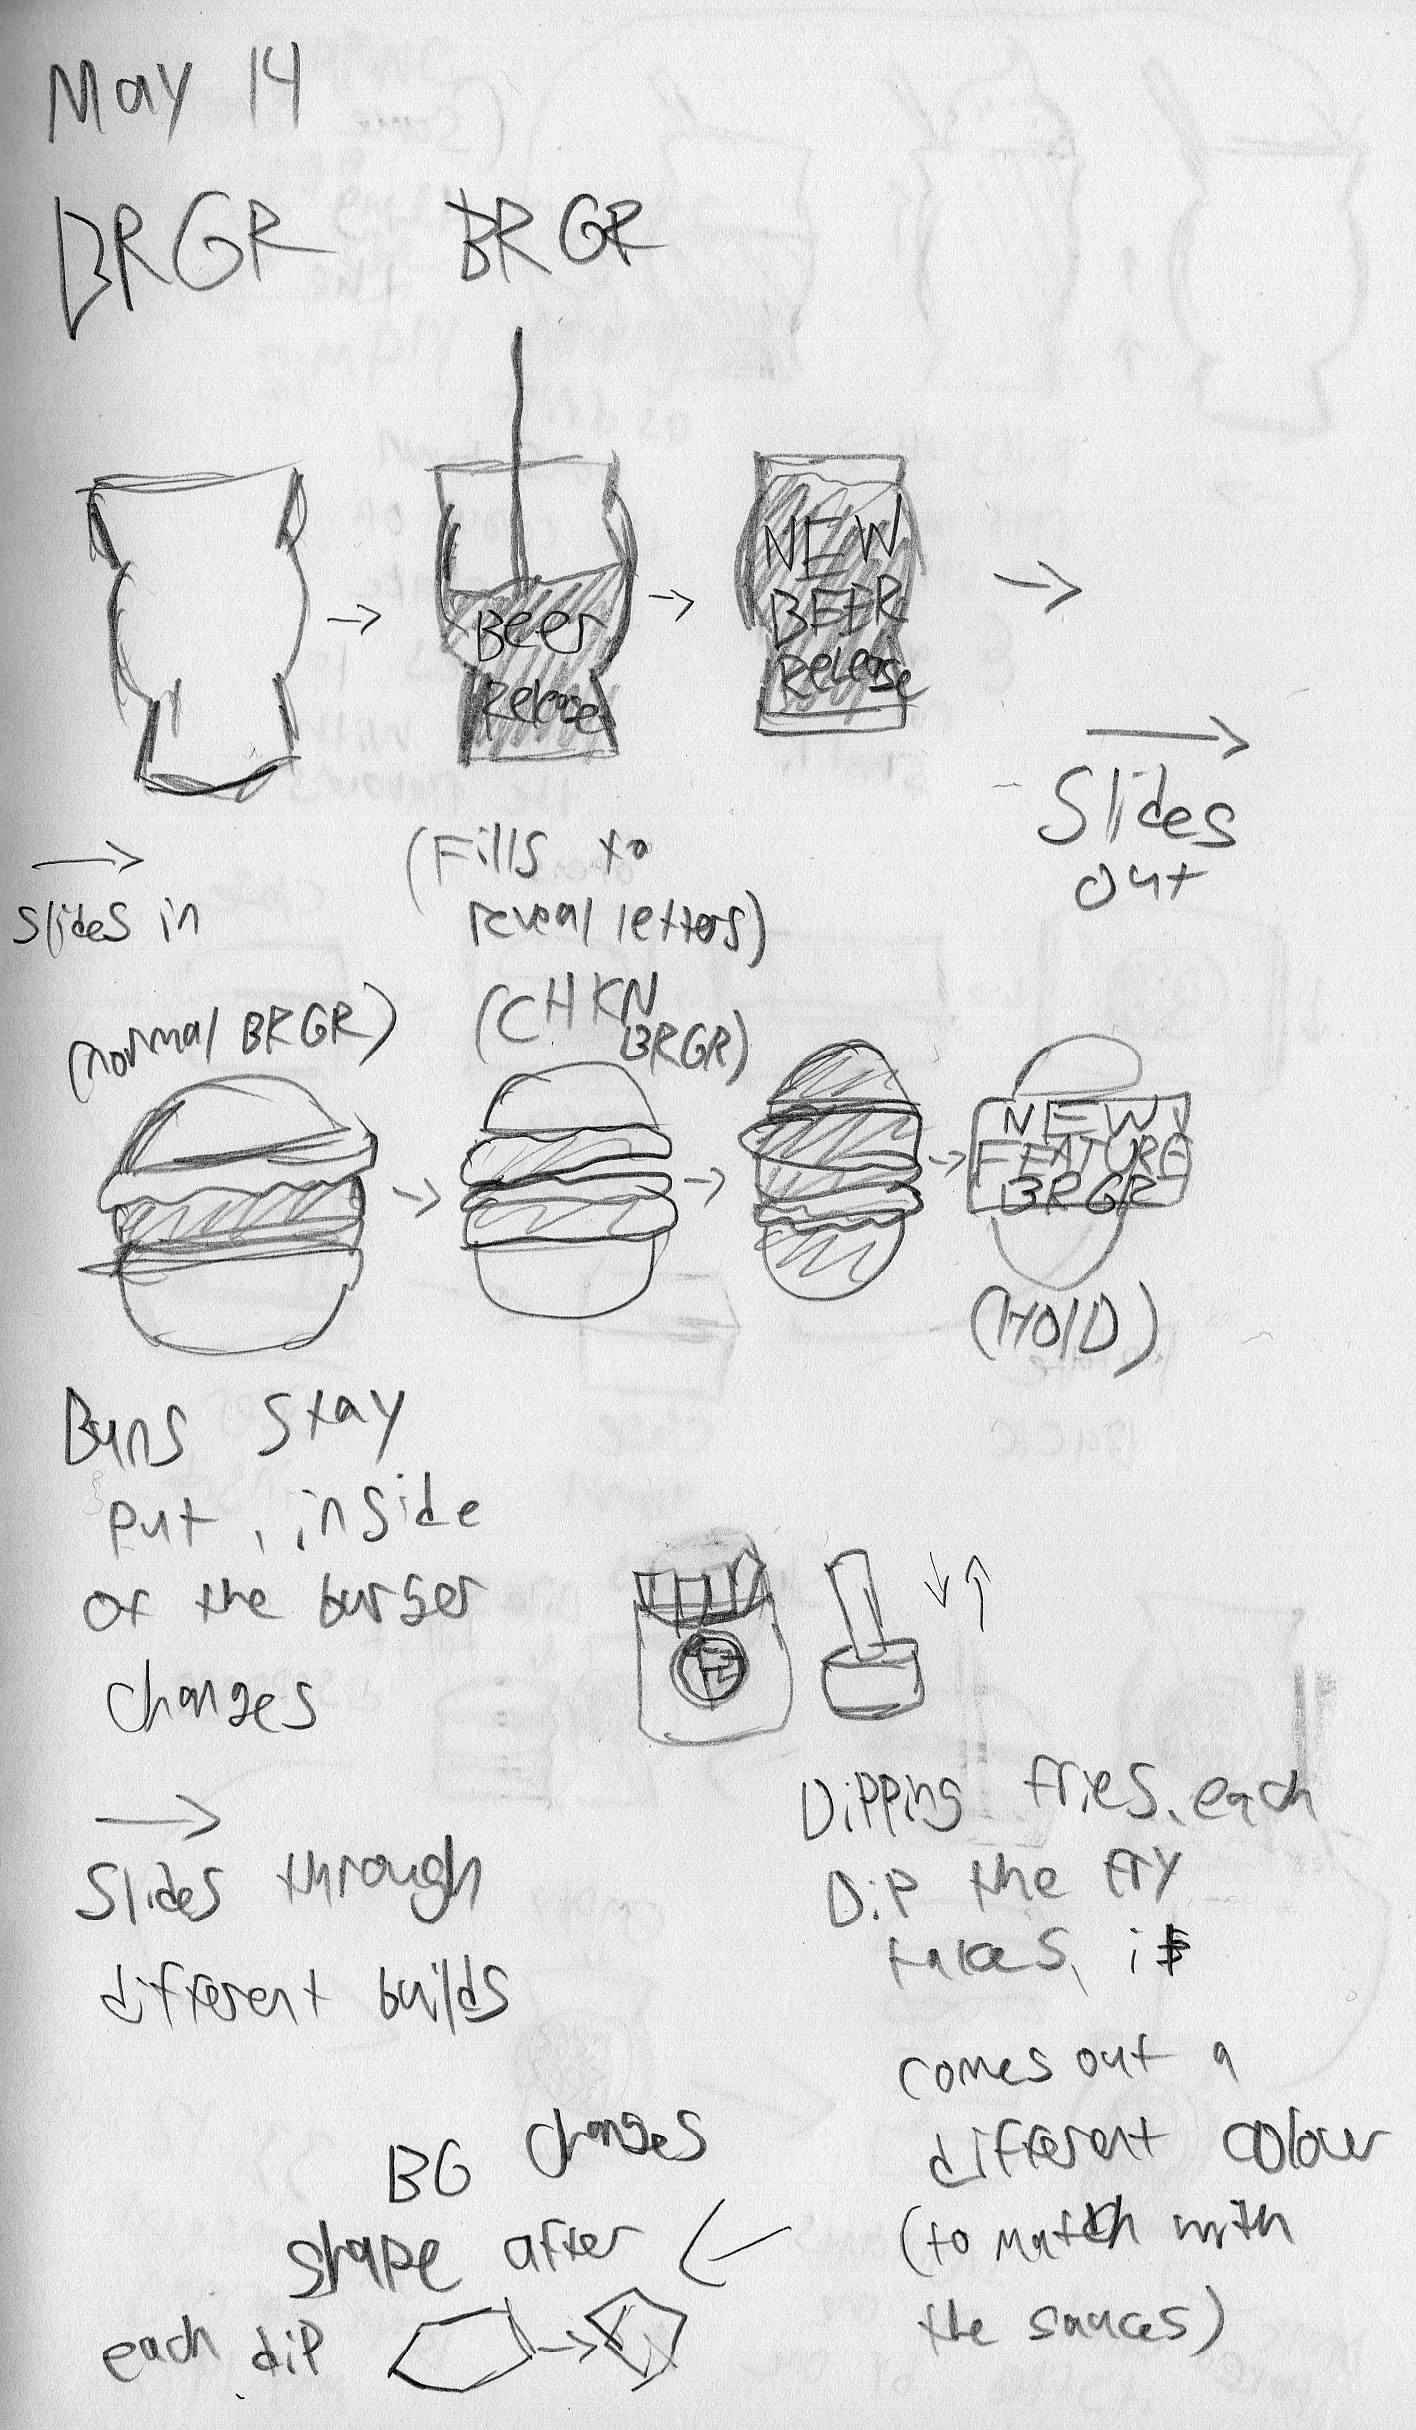 May 14
BRGR BRGR
Beer
Release
NEW
BEER
Release
Slides
out
slides in
(Fills to
reveal letters)
(normal BRGR)
(CHKN
BRGR)
NEW
FEATURE
BRGR
(HOLD)
Buns stay
put, inside
of the burger
changes
Slides through
different builds
Dipping fries, each
Dip the fry
takes, it
comes out a
different colour
(to match with
the sauces)
BG changes
shape after
each dip